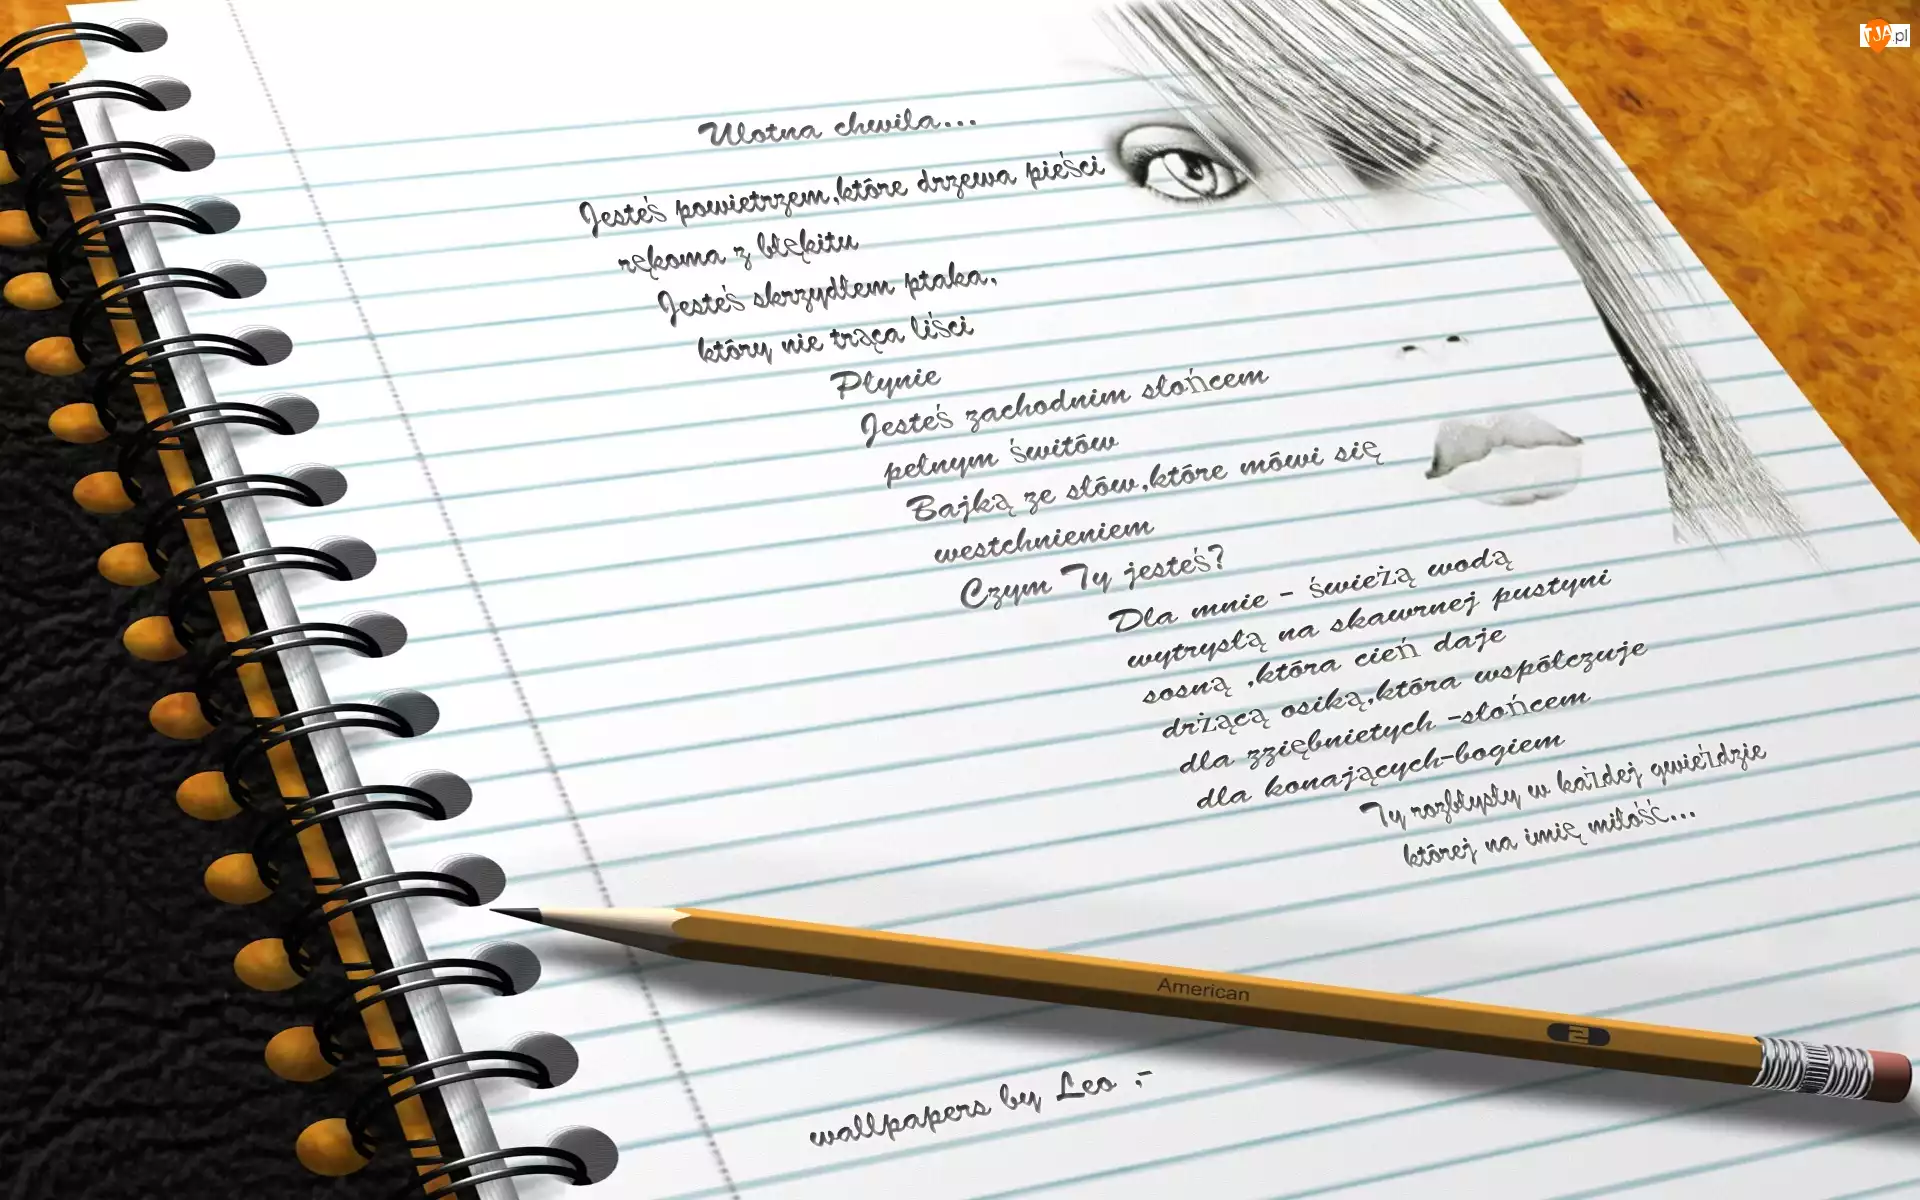 Ulotna chwila...
Jesteś powietrzem,które drzewa pieści
rękoma z błękitu
Jesteś skrzydłem ptaka,
który nie trąca liści
Płynie
Jesteś zachodnim słońcem
pełnym świtów
Bajką ze słów,które mówi się
westchnieniem
Czym Ty jesteś?
Dla mnie - świeżą wodą
wytrysłą na skawrnej pustyni
sosną ,która cień daje
drżącą osiką,która współczuje
dla zziębnietych -słońcem
dla konających-bogiem
Ty rozbłysły w każdej gwieździe
której na imię miłość...
American
2
wallpapers by Leo ;-
TJA.pl